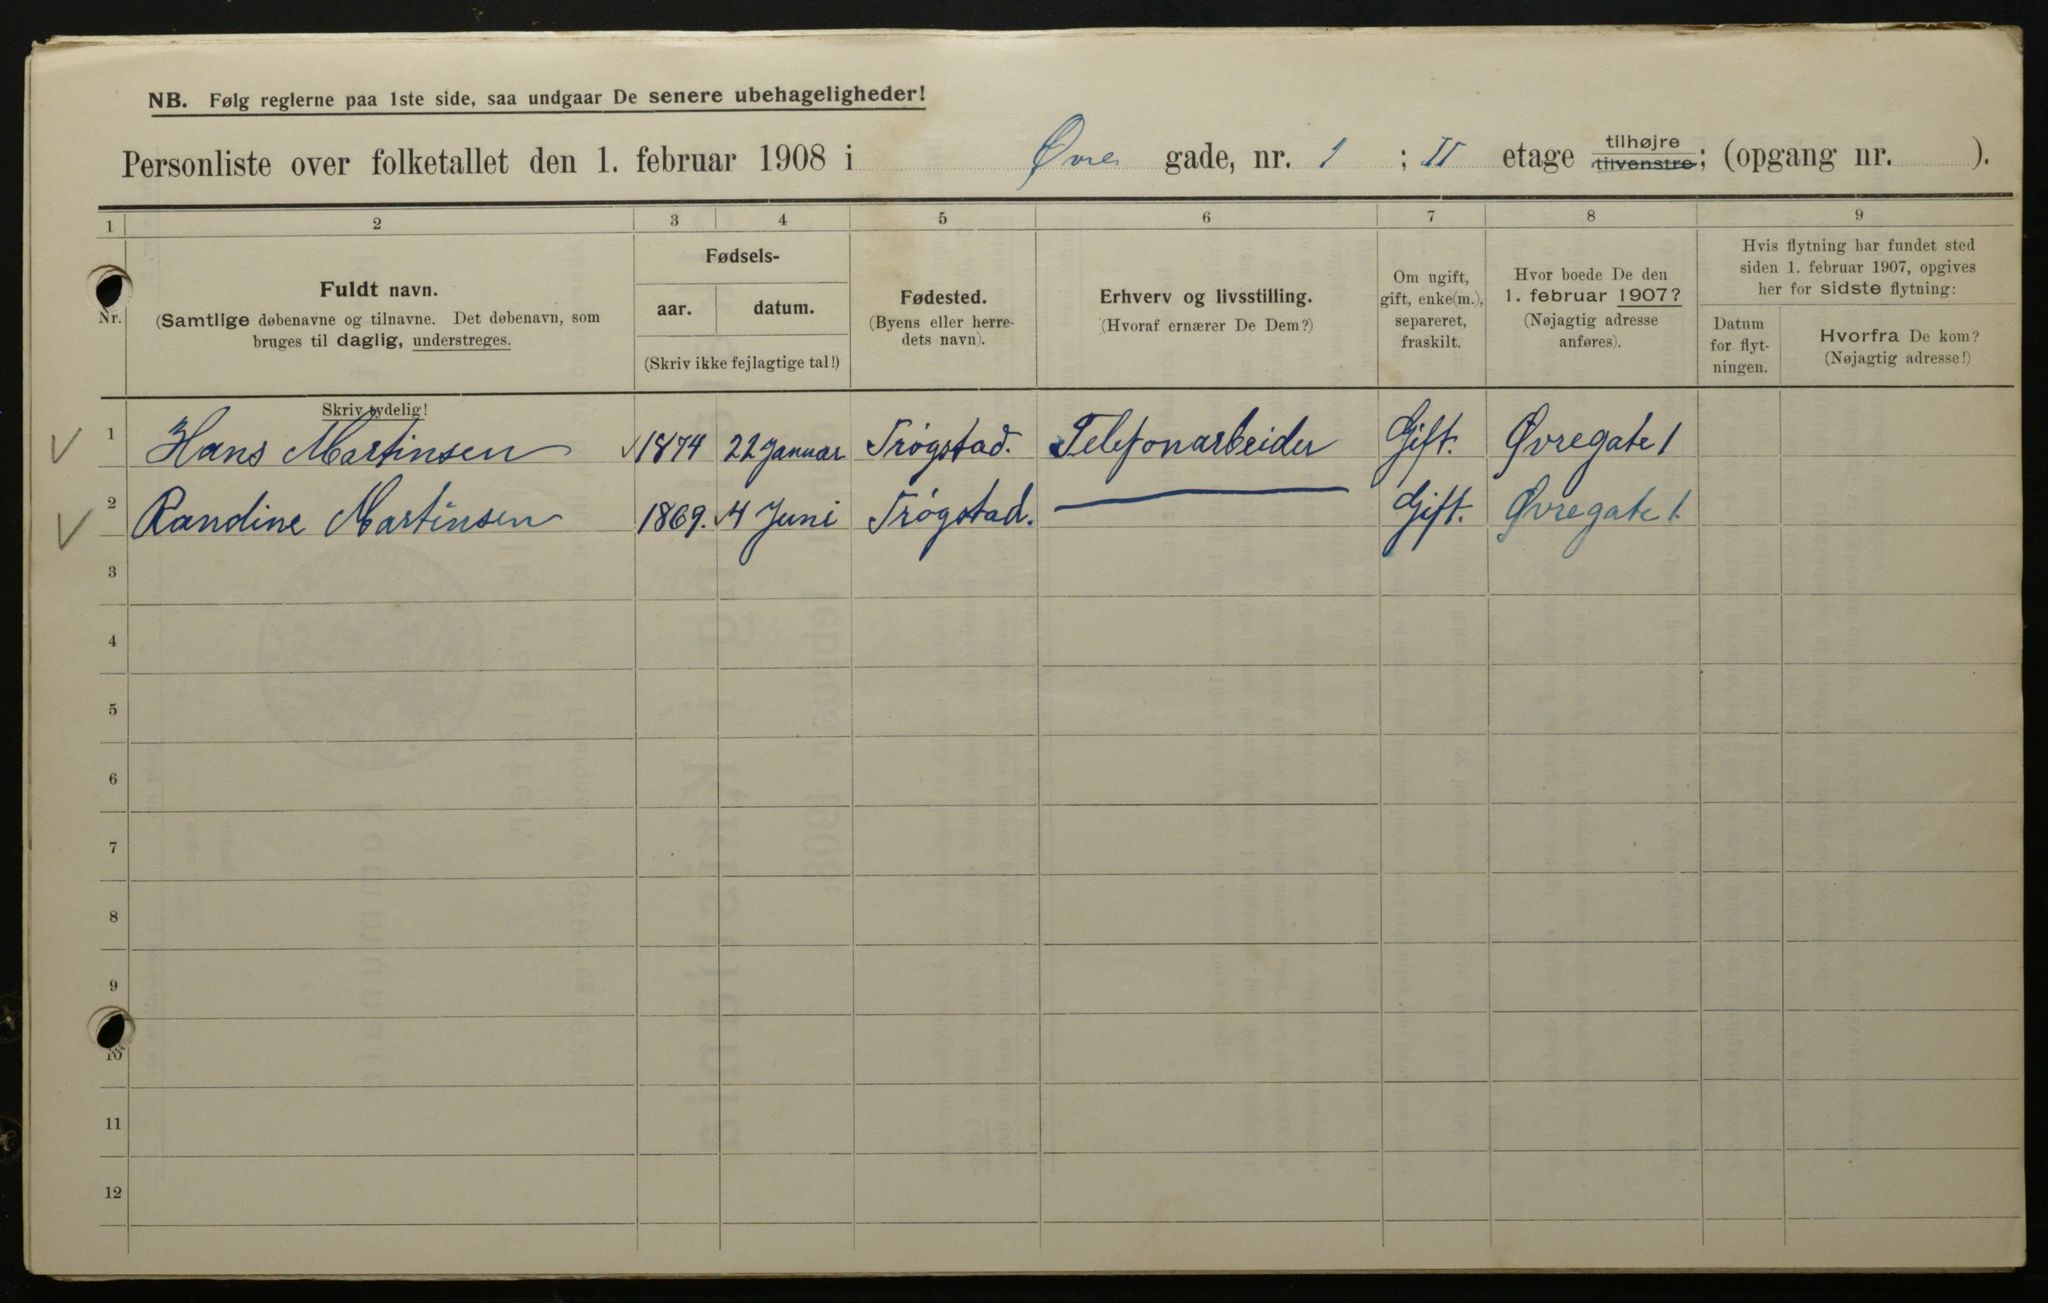 NB. Følg reglerne paa 1ste side, saa undgaar De senere ubehageligheder!
Personliste over folketallet den 1. februar 1908 i Øvre gade, nr. 1 ; II etage tilhøjre tilvenstre; (opgang nr. ).
1 2 3 4 5 6 7 8 9
Nr.
Fuldt navn.
(Samtlige døbenavne og tilnavne. Det døbenavn, som
bruges til daglig, understreges.
Fødsels-
aar. datum.
(Skriv ikke fejlagtige tal!)
Fødested.
(Byens eller herre-
dets navn).
Erhverv og livsstilling.
(Hvoraf ernærer De Dem?)
Om ugift,
gift, enke(m.),
separeret,
fraskilt.
Hvor boede De den
1. februar 1907?
(Nøjagtig adresse
anføres).
Hvis flytning har fundet sted
siden 1. februar 1907, opgives
her for sidste flytning:
Datum
for flyt-
ningen.
Hvorfra De kom?
(Nøjagtig adresse!)
Skriv tydelig!
1 Hans Martinsen 1874 22 Januar Trøgstad. Telefonarbeider Gift. Øvregate 1
2 Randine Martinsen 1869. 4 Juni Trøgstad. Gift. Øvregate 1.
3
4
5
6
7
8
9
10
11
12